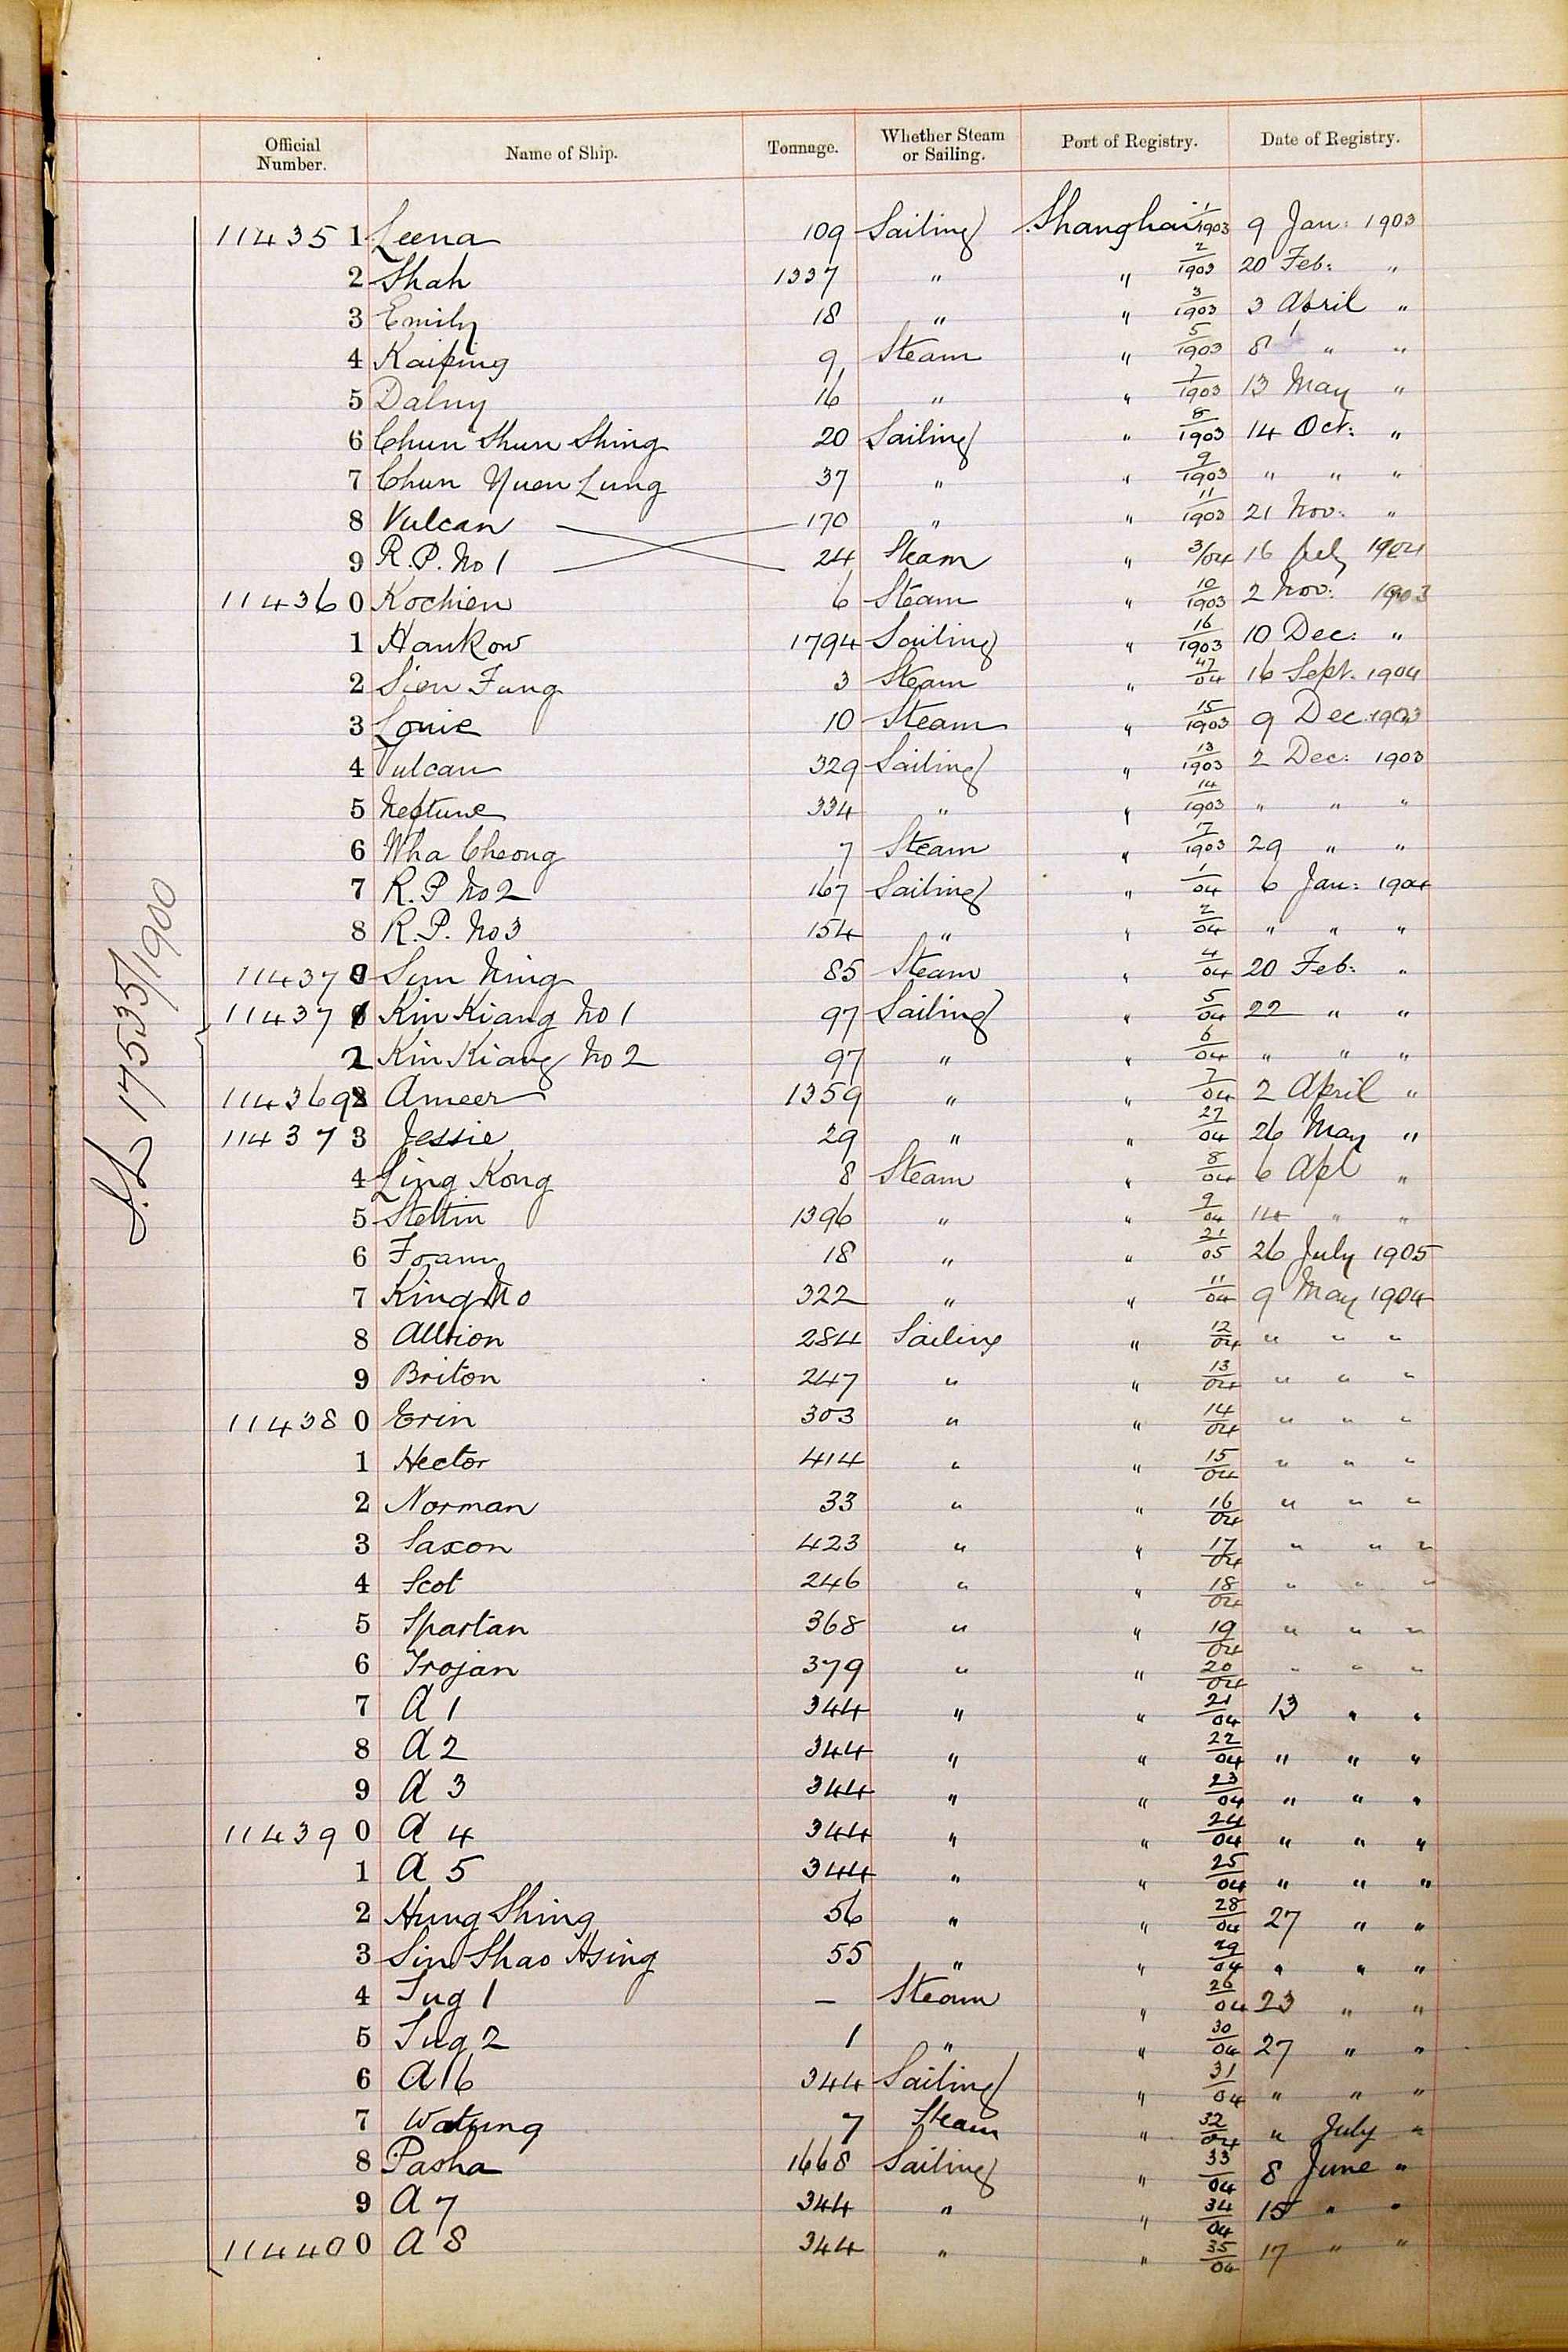 Official Number. Name of Ship. Tonnage. Whether Steam or Sailing. Port of Registry. Date of Registry.
11435 1 Leena 109 Sailing Shanghai 1/1903 9 Jan: 1903
2 Shah 1337 " " 2/1903 20 Feb: "
3 Emily 18 " " 3/1903 3 April "
4 Kaiping 9 Steam " 5/1903 8 " "
5 Dalny 16 " " 7/1903 13 May "
6 Chun Shun Shing 20 Sailing " 8/1903 14 Oct: "
7 Chun Yuen Lung 37 " " 9/1903 " " "
8 Vulcan 170 " " 11/1903 21 Nov: "
9 R.P. No 1 24 Steam " 3/04 16 1904
11436 0 Kochien 6 Steam " 10/1903 2 Nov: 1903
1 Hankow 1794 Sailing " 16/1903 10 Dec: "
2 Sien Fung 3 Steam " 47/04 16 Sept. 1904
3 Louie 10 Steam " 15/1903 9 Dec 1903
4 Vulcan 329 Sailing " 13/1903 2 Dec: 1903
5 Neptune 334 " " 14/1903 " " "
6 Wha Cheong 7 Steam " 17/1903 29 " "
7 R.P No 2 167 Sailing " 1/04 6 Jan: 1904
8 R.P. No 3 154 " " 2/04 " " "
11437 0 Sun Ning 85 Steam " 4/04 20 Feb: "
11437 1 Kin Kiang No 1 97 Sailing " 5/04 22 " "
2 Kin Kiang No 2 97 " " 6/04 " " "
114369 Ameer 1359 " " 7/04 2 April "
11437 3 Jessie 29 " " 27/04 26 May "
4 Ling Kong 8 Steam " 8/04 6 Apl "
5 Stettin 1396 " " 9/04 14 " "
6 Foam 18 " " 21/05 26 July 1905
7 King No 322 " " 11/04 9 May 1904
8 Albion 284 Sailing " 12/04 " " "
9 Briton 247 " " 13/04 " " "
11438 0 Erin 303 " " 14/04 " " "
1 Hector 414 " " 15/04 " " "
2 Norman 33 " " 16/04 " " "
3 Saxon 423 " " 17/04 " " "
4 Scot 246 " " 18/04 " " "
5 Spartan 368 " " 19/04 " " "
6 Trojan 379 " " 20/04 " " "
7 A 1 344 " " 21/04 13 " "
8 A 2 344 " " 22/04 " " "
9 A 3 344 " " 23/04 " " "
11439 0 A 4 344 " " 24/04 " " "
1 A 5 344 " " 25/04 " " "
2 Hung Shing 56 " " 28/04 27 " "
3 Sin Shao Hsing 55 " " 29/04 " " "
4 Tug 1 — Steam " 26/04 23 " "
5 Tug 2 1 " " 30/04 27 " "
6 A 16 344 Sailing " 31/04 " " "
7 Watung 7 Steam " 32/04 " July "
8 Pasha 1668 Sailing " 33/04 8 June "
9 A 7 344 " " 34/04 15 " "
11440 0 A 8 344 " " 35/04 17 " "
S.L 17535/1900